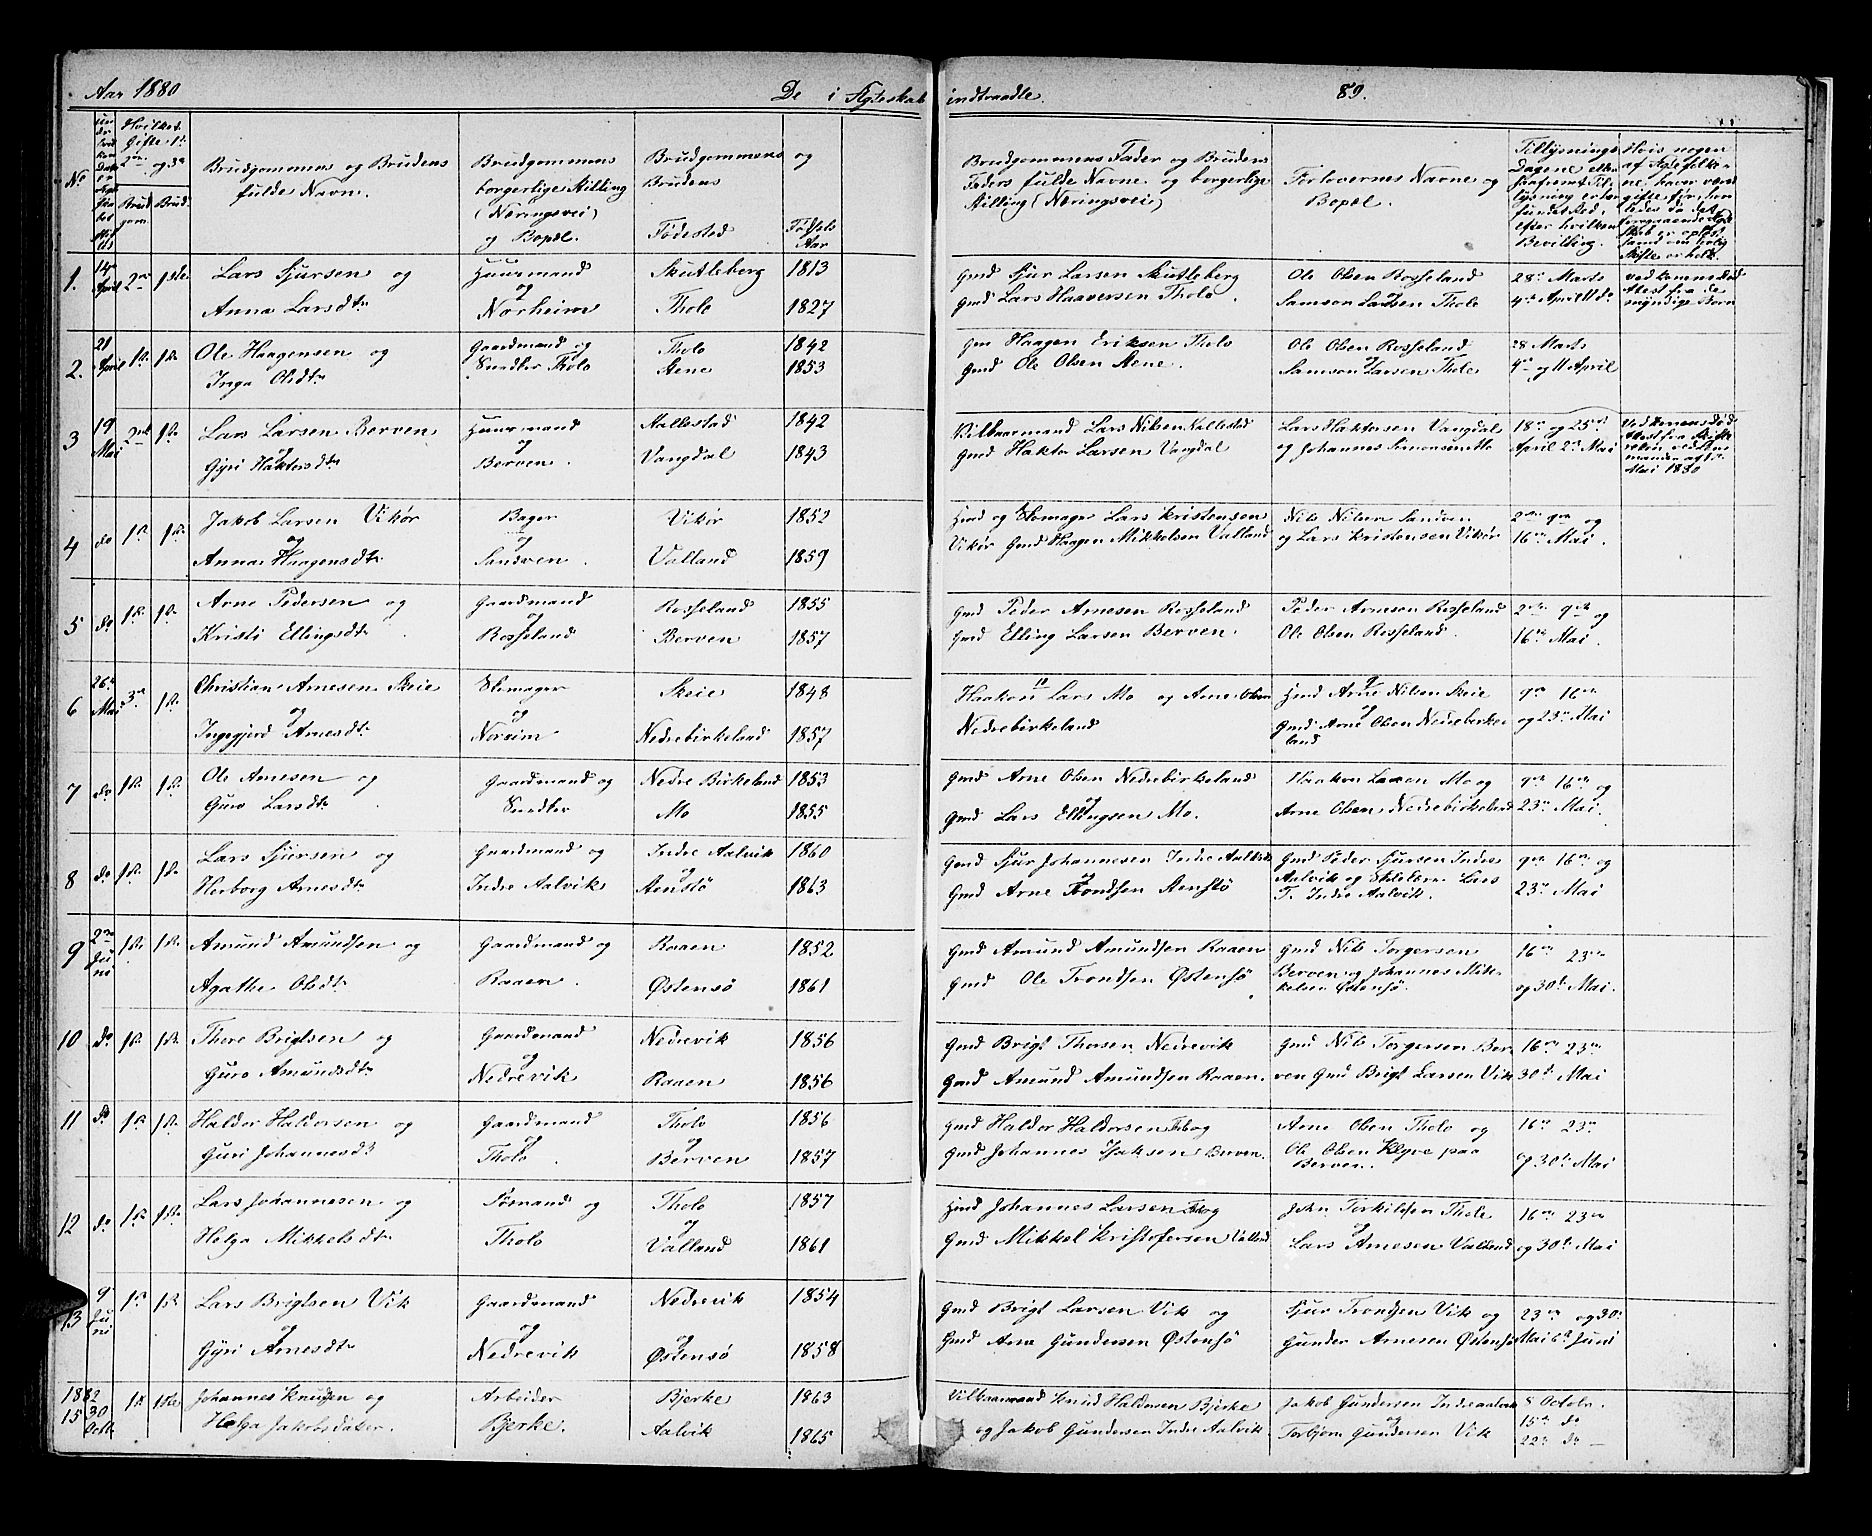 Aar 1880 De i Ægteskab indtraadte. 89.
No
Hvilket Gifte 1ste 2den og 3die
Brudgom Brud
Brudgommens og Brudens fulde Navn.
Brudgommens borgerlige Stilling (Næringsvei) og Bopæl.
Brudgommens og Brudens Fødested
Fødsels Aar
Brudgommens Fader og Brudens Faders fulde Navne og borgerlige Stilling (Næringsvei)
Forlovernes Navne og Bopæl.
1. 14de April 2den 1ste Lars Sjursen og Huusmand Skutleberg 1813 Gmd Sjur Larsen Skutleberg Ole Olsen Rosseland 28de Marts
Anna Larsdtr og Norheim Tholo 1827 Gmd Lars Haaversen Tholo. Samson Larsen Tholo 4de April 11 do
2. 21 April 1ste 1ste Ole Haagensen og Gaardmand og Tholo 1842 Haagen Eriksen Tholo Ole Olsen Rosseland 28 Marts
Inga Olsdtr Sundler Tholo Aene 1853 Gmd Ole Olsen Aene. Samson Larsen Tholo 4de og 11 April
3 19 Mai 2den 1ste Lars Larsen Berven Huusmand Aallestad 1842 Vilkaarmand Lars Nilsen Lars Haktorsen Vangdal 18de og 25de
og Gyri Haktorsdtr og Berven. Vangdal 1843 Gmd Haktor Larsen Vangdal og Johannes April 2den Mai
Mai 1880
4 do 1ste 1ste Jakob Larsen Vikør Bager Vikør 1852 Hmd og Skomager Lars Kristensen Nils Nilsen Sandven 2den 9de og
og Anna Haagensdtr og Sandven. Valland 1859 Vikør Gmd Haagen Mikkelsen Valland og Lars Kristensen Vikør 16de Mai.
5 do 1ste 1ste Arne Pedersen og Gaardmand Rosseland 1855 Gmd Peder Arnesen Rosseland Peder Arnesen Rosseland 2den 9de og
Kristi Ellingsdtr og Rosseland Berven 1857 Gmd Elling Larsen Berven. Ole Olsen Rosseland. 16de Mai.
6 26de Mai 3die 1ste Christian Arnesen Skeie Skomager Skeie 1848 Haakon Lars Mo og Arne Olsen Hmd Arne Nilsen Skeie 9de 16de
og Ingegjerd Arnesdtr og Noreim Nedrebirkeland 1857 Nedrebirkeland og Gmd Arne Olsen Nedrebirkeland og 23de Mai
7 do 1ste 1ste Ole Arnesen og Gaardmand og Nedre Birkeland 1853 Gmd Arne Olsen Nedrebirkeland Haakon Larsen Mo og 9de 16de og
Guro Larsdtr Sundler Mo 1855 og Gmd Lars Ellingsen Mo. Arne Olsen Nedrebirkeland 23de Mai.
8 do 1ste 1ste Lars Sjursen og Gaardmand og Indre Aalvik 1860 Gmd Sjur Johannesen Indre Aalvik Gmd Peder Sjursen Indre 9de 16de og
Herborg Arnesdtr Indre Aalvik og Aenstø 1863 og Gmd Arne Trondsen Aenstø Aalvik og Skolelærer Lars T. Indre Aalvik. 23de Mai
9 2den Juni 1ste 1ste Amund Amundsen og Gaardmand og Raaen 1852 Gmd Amund Amundsen Raaen Gmd Nils Torgersen 16de 23de
Agathe Olsdtr Raaen. Østensø 1861 Gmd Ole Trondsen Østensø Berven og Johannes Mikkelsen Østensø. og 30te Mai.
10 do 1ste 1ste Thore Brigtsen og Gaardmand Nedrevik 1856 Gmd Brigt Thorsen Nedrevik Gmd Nils Torgersen Ber 16de 23de
Guro Amundsdtr og Nedrevik Raaen 1856 Gmd Amund Amundsen Raaen. ven Gmd Brigt Larsen Vik 30te Mai
11 do 1ste 1ste Haldor Haldorsen og Gaardmand Tholo 1856 Gmd Haldor Haldorsen Tolo og Arne Olsen Tholo og 16de 23de
Guri Johannesdt og Tholo. og Berven 1857 Gmd Johannes Isaksen Berven. Ole Olsen Klyve paa Berven. og 30te Mai
12 do 1ste 1ste Lars Johannesen og Sømand og Tholo 1857 Hmd Johannes Larsen Tolo og John Torkildsen Tholo 16de 23de
Helga Mikkelsdtr Tholo og Valland 1861 Gmd Mikkel Kristofersen Valland og Lars Arnesen Valland og 30te Mai
13 9 Juni 1ste 1ste Lars Brigtsen Vik Gaardmand Nedrevik 1854 Gmd Brigt Larsen Vik og Sjur Trondsen Vik og 23de og 30te
og Gyri Arnesdtr og Nedrevik og Østensø 1858 Gmd Arne Gundersen Østensø Gunder Arnesen Østensø Mai 6te Juni
1882 15 30 Octb. 1ste 1ste Johannes Knudsen og Arbeider Bjerke 1863 Vilkaarmand Knud Haldorsen Bjerke Jakob Gundersen Indreaalvik 8 Octobr.
Helga Jakobsdatter Bjerke. Aalvik 1865 og Jakob Gundersen Indre Aalvik og Torbjørn Gundersen Vik 15de do
22de do